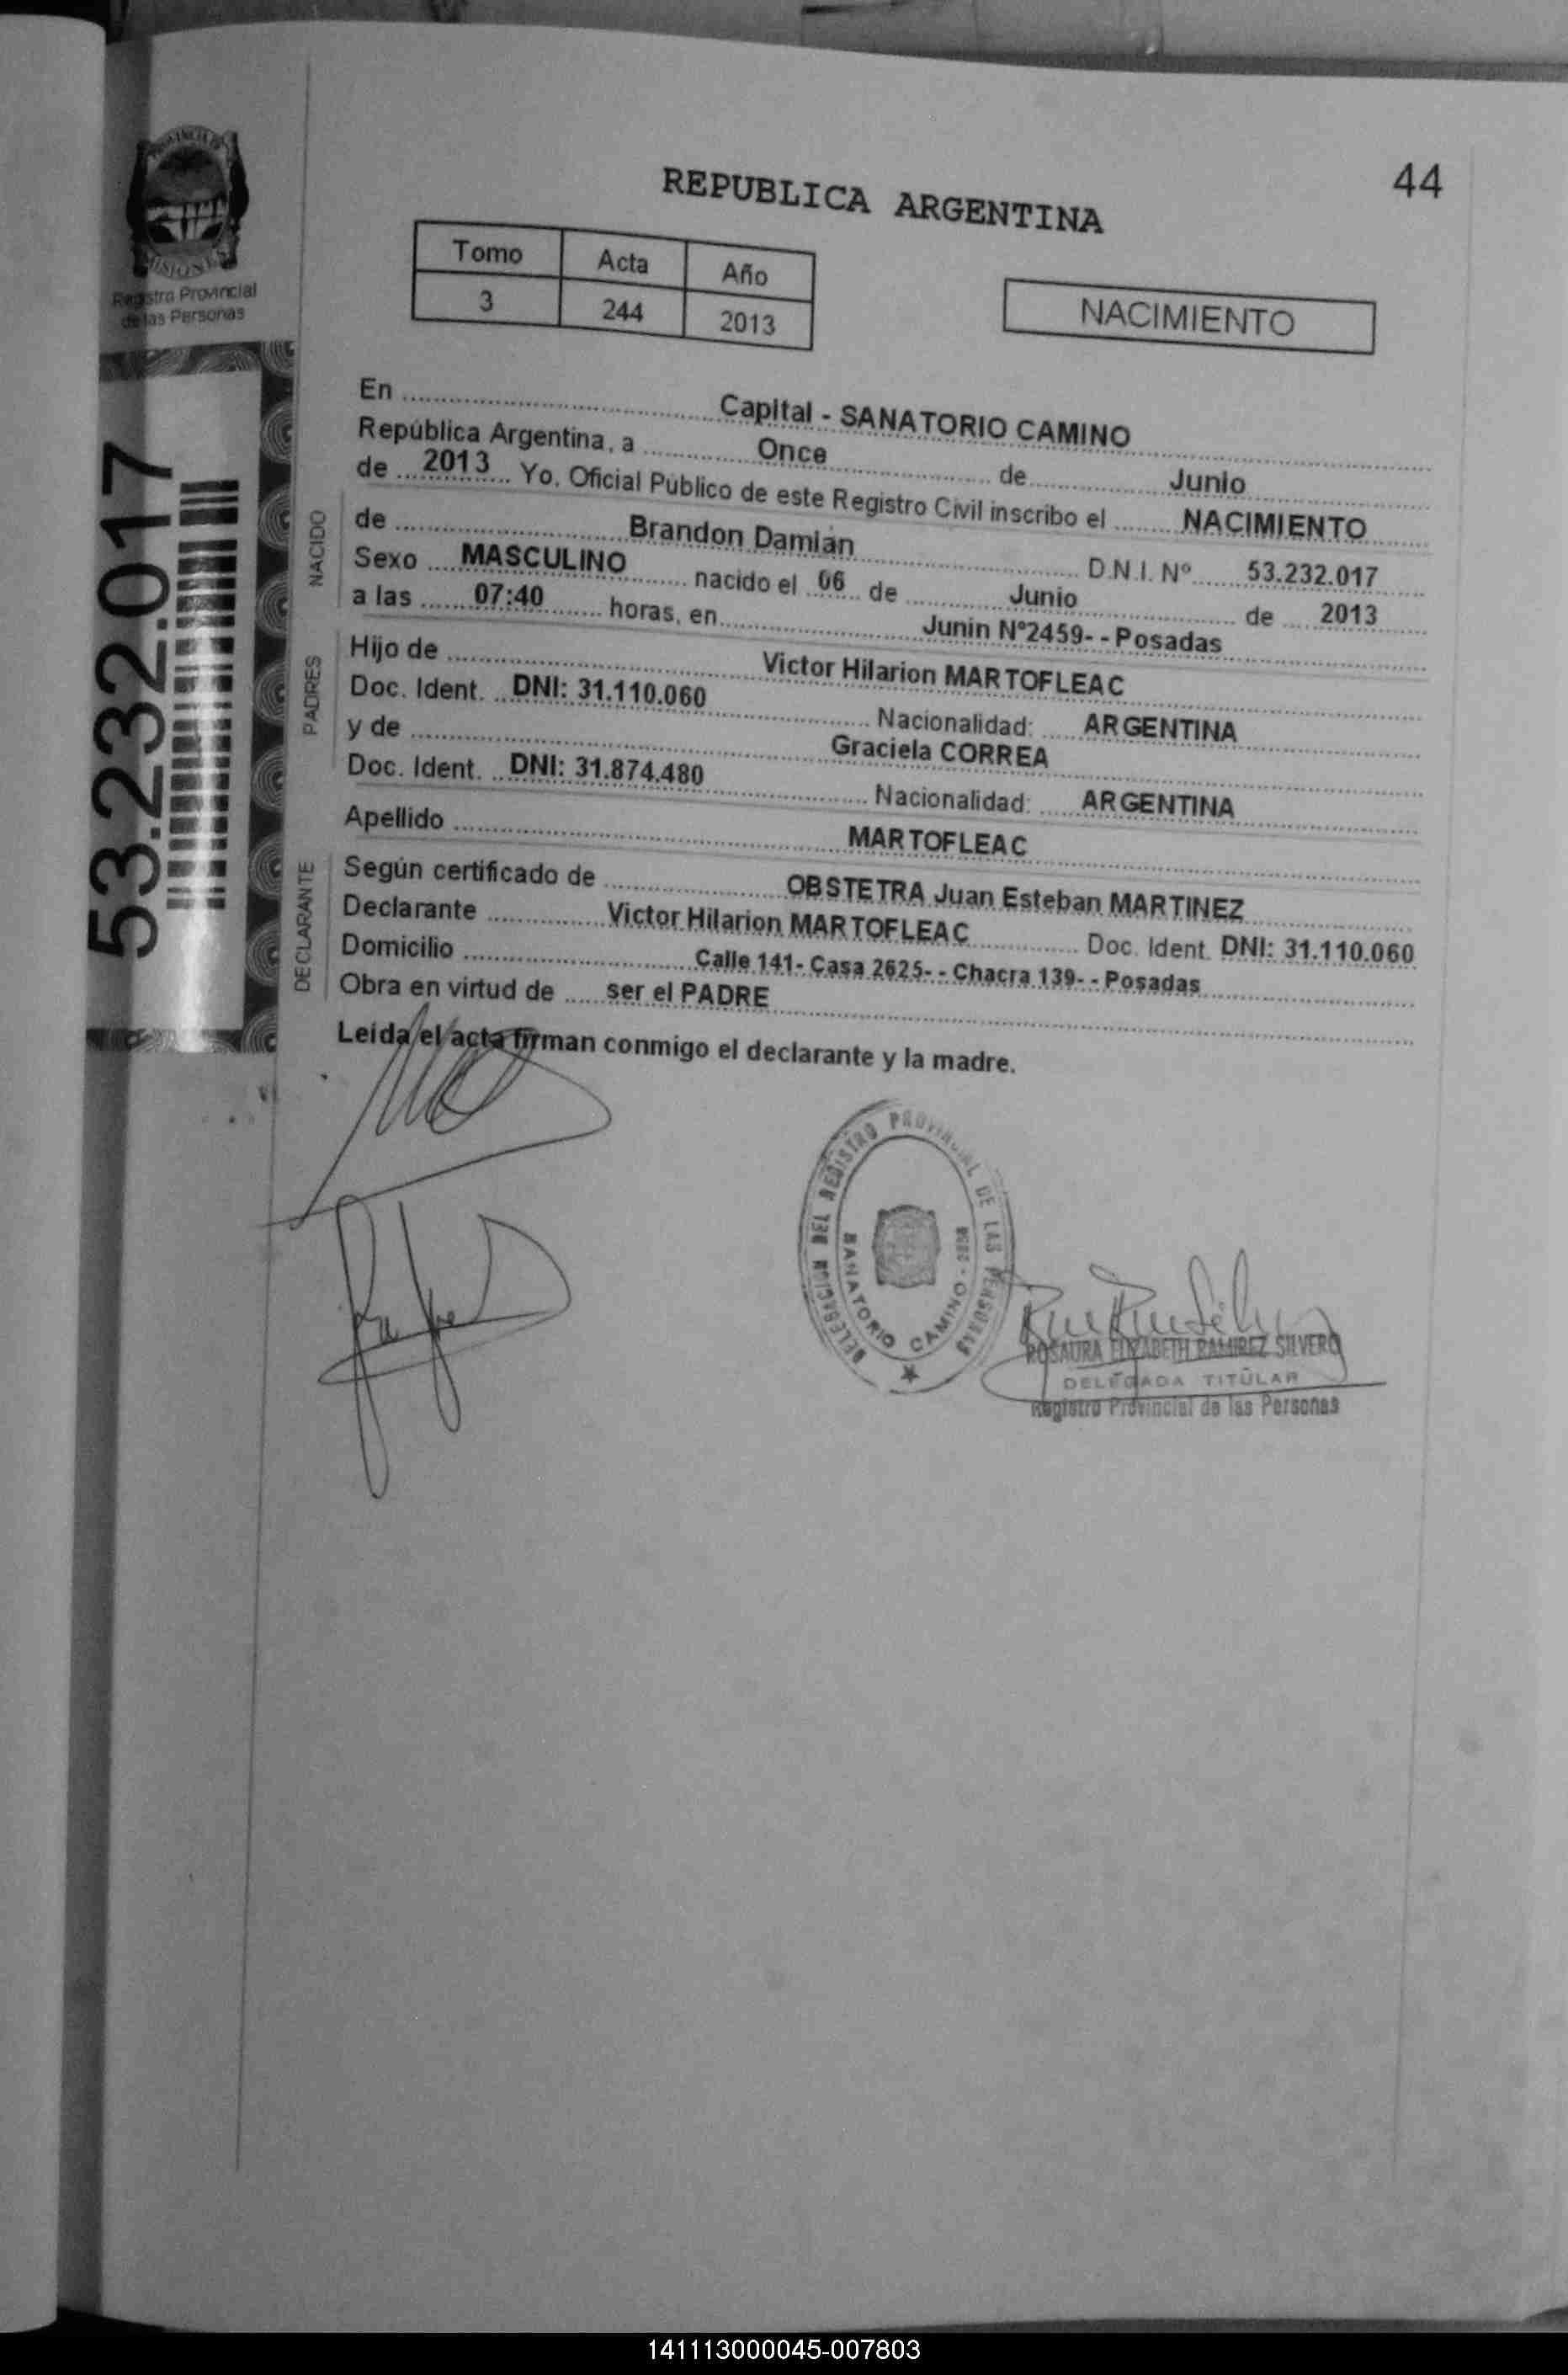 44
REPUBLICA ARGENTINA
PROVINCIA DE
MISIONES
Registro Provincial
de las Personas
Tomo Acta Año
3 244 2013
NACIMIENTO
53.232.017
En ........ Capital - SANATORIO CAMINO
República Argentina, a ........ Once ........ de ........ Junio
de ... 2013 ... Yo, Oficial Público de este Registro Civil inscribo el ........ NACIMIENTO
NACIDO
de ........ Brandon Damián ........ D.N.I. Nº ........ 53.232.017
Sexo .... MASCULINO ........ nacido el .. 06 .. de ........ Junio ........ de .... 2013
a las ...... 07:40 ........ horas, en ........ Junin Nº2459- - Posadas
PADRES
Hijo de ........ Victor Hilarion MARTOFLEAC
Doc. Ident. .. DNI: 31.110.060 ........ Nacionalidad: ..... ARGENTINA
y de ........ Graciela CORREA
Doc. Ident. .. DNI: 31.874.480 ........ Nacionalidad: ..... ARGENTINA
Apellido ........ MARTOFLEAC
DECLARANTE
Según certificado de ........ OBSTETRA Juan Esteban MARTINEZ
Declarante ........ Victor Hilarion MARTOFLEAC ........ Doc. Ident. DNI: 31.110.060
Domicilio ........ Calle 141- Casa 2625- - Chacra 139- - Posadas
Obra en virtud de ..... ser el PADRE
Leída el acta firman conmigo el declarante y la madre.
DELEGACION DEL REGISTRO PROVINCIAL DE LAS PERSONAS
SANATORIO CAMINO -
ROSAURA ELIZABETH RAMIREZ SILVERO
DELEGADA TITULAR
Registro Provincial de las Personas
141113000045-007803